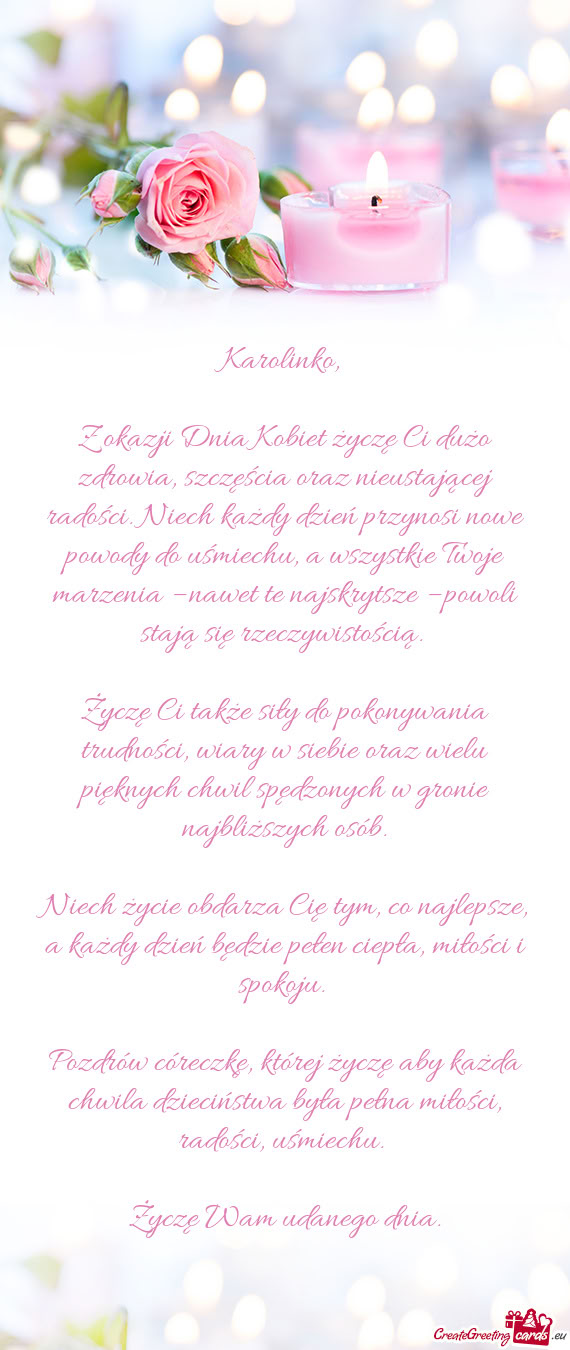 Karolinko,
Z okazji Dnia Kobiet życzę Ci dużo
zdrowia, szczęścia oraz nieustającej
radości. Niech każdy dzień przynosi nowe
powody do uśmiechu, a wszystkie Twoje
marzenia – nawet te najskrytsze – powoli
stają się rzeczywistością.
Życzę Ci także siły do pokonywania
trudności, wiary w siebie oraz wielu
pięknych chwil spędzonych w gronie
najbliższych osób.
Niech życie obdarza Cię tym, co najlepsze,
a każdy dzień będzie pełen ciepła, miłości i
spokoju.
Pozdrów córeczkę, której życzę aby każda
chwila dzieciństwa była pełna miłości,
radości, uśmiechu.
Życzę Wam udanego dnia.
CreateGreeting cards .eu